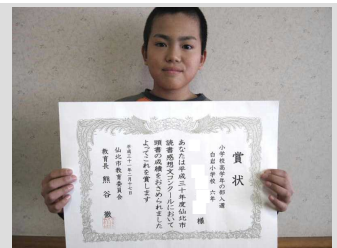 賞状
小学校高学年の部入選
白岩小学校 六年
様
あなたは平成三十年度仙北市
読書感想文コンクールにおいて
頭書の成績をおさめられました
よってこれを賞します
平成三十一年二月十七日
仙北市教育委員会
教育長 熊谷 徹